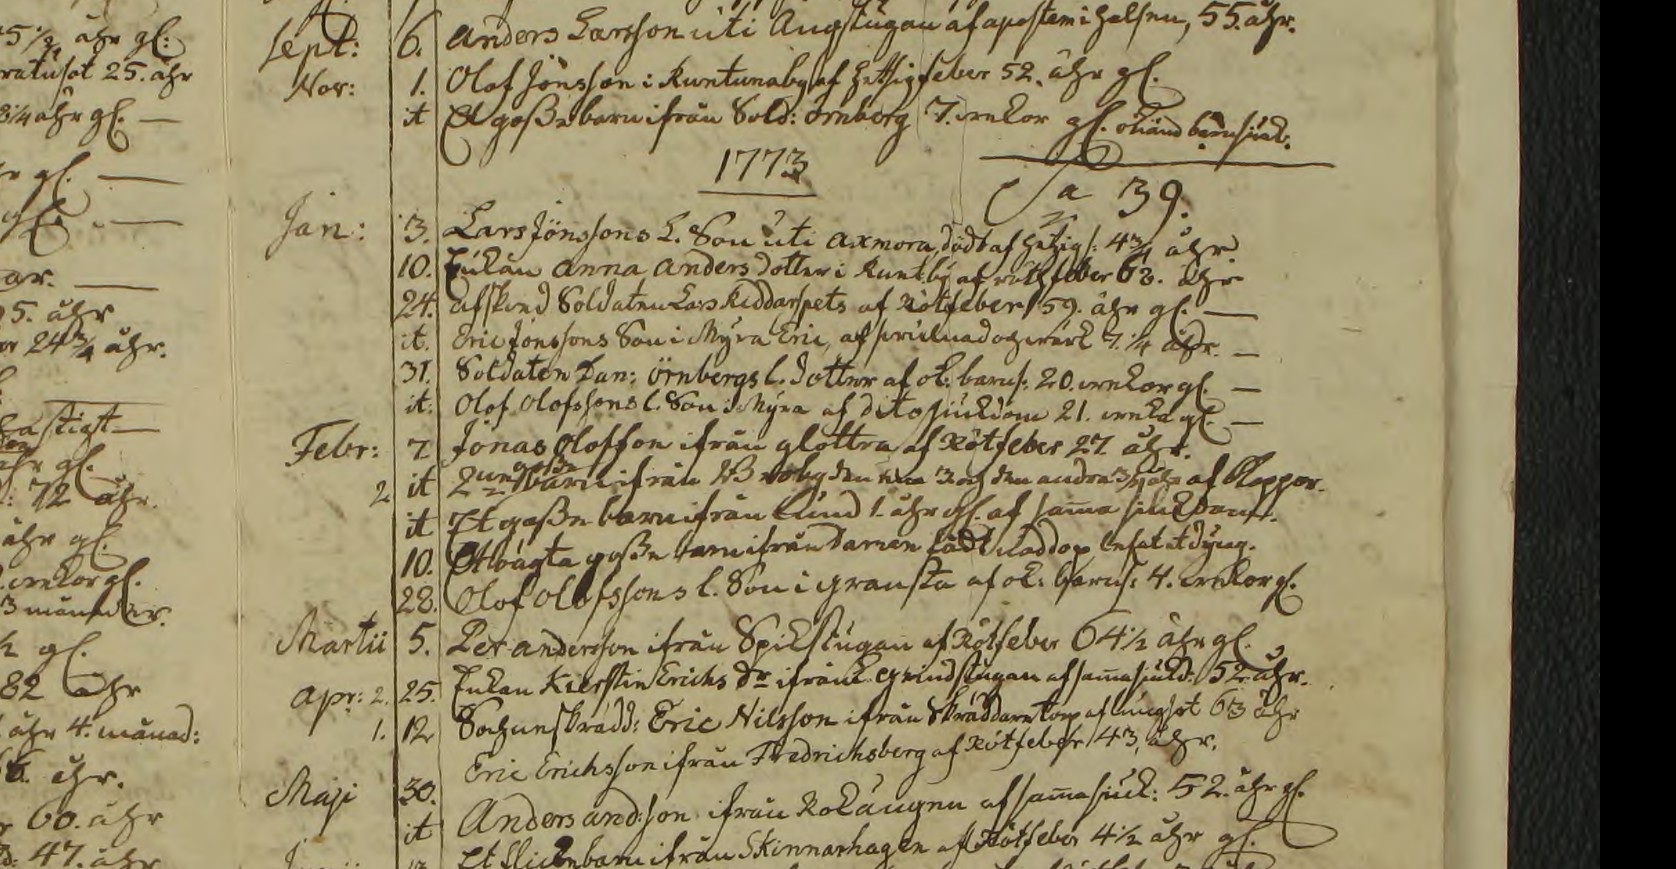 5 1/2 åhr gl:
25. åhr
3 1/4 åhr gl. —
gl. —
gl. —
ar. —
95. åhr
24 3/4 åhr.
gl.
: 72 åhr.
åhr gl.
gl.
3 månader.
½ gl.
82 åhr
åhr 4. månad:
åhr.
60. åhr
47. åhr
Sept: 6. Anders Larsson uti Augstugan af apostem i halsen, 55. åhr.
Nov: 1. Olof Jönsson i Runtunaby af hetsig feber 52. åhr gl.
it Et gosse barn ifrån Sold: örnberg 7. wekor gl. okänd barnsiuk.
1773
Sa 39.
Jan: 3. Lars Jönssons l. Son uti Axmora, dödt af hetzig f: 4 3/4 åhr.
10. Enkan Anna Anders dotter i Runtby af rötfeber 68. åhr
24. afsked Soldaten Lars Kiddarspets af Rötfeber 59. åhr gl. —
it. Eric Jonssons Son i Myra Eric, af 7. 1/4 åhr. —
31. Soldaten Dan: örnbergs l. dotter af ok: barns: 20. wekor gl. —
it: Olof Olofssons l. Son i Myra af dito siukdom 21. weka gl. —
Febr: 7 Jonas Oloffson ifrån glottra af Rötfeber 27 åhr.
2 it 2 ne gosse barn ifrån Broby den ena 3 och den andra 3/4 åhr af Koppor.
it Et gosse barn ifrån Lund 1. åhr gl. af samma siukdom.
10. Et oägta gosse barn ifrån Damen
28. Olof Olofssons l. Son i gransta af ok: barns: 4. wekor gl.
Martii 5. Per andersson ifrån Spikstugan af Rötfeber 64 1/2 åhr gl.
Apr: 2. 25. Enkan Kierstin Erichs dr ifrån qwindstugan af samma siukd: 52 åhr.
1. 12 Sochnskrädd: Eric Nilsson ifrån Skräddaretorp af lungsot 63 åhr
Eric Erichsson ifrån Fredrichsberg af Rötfeber 43, åhr.
Maji 30. Anders andson ifrån Rokängen af samma siuk: 52. åhr gl.
it Et flickebarn ifrån Skinnarhagen af Rötfeber 4 1/2 åhr gl.